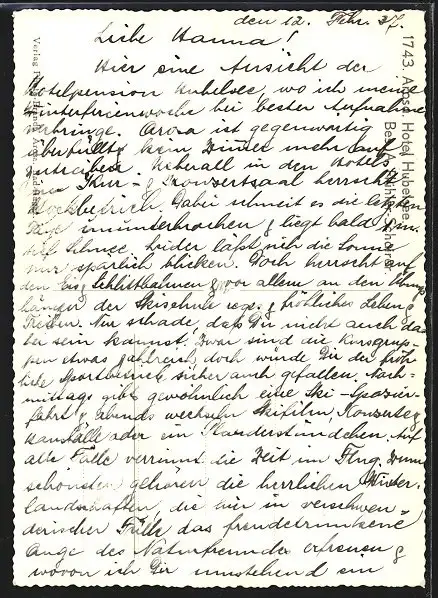 den 12. Febr. 37.
Liebe Hanna!
Hier eine Ansicht der
Hotelpension Hubelsee, wo ich meine
Winterferienwoche bei bester Aufnahme
verbringe. Arosa ist gegenwärtig
überfüllt, kein Zimmer mehr auf
zutreiben. Überall in den Hotels
Kur- & Konzertsaal herrscht
Hochbetrieb. Dabei schneit es die letzten
Tage ununterbrochen & liegt bald 1 m.
tief Schnee, leider läßt sich die Sonne
nur spärlich blicken. Doch herrscht auf
den Eis, Schlittbahnen & vor allem an den Übungs
hängen der Skischule reges & fröhliches Leben &
Treiben. Nur schade, daß Du nicht auch da
bei sein kannst. Zwar sind die Kursgrup-
pen etwas zahlreich, doch würde Dir der fröh
liche Sportbetrieb sicher auch gefallen. Nach-
mittags gibt's gewöhnlich eine Ski-Spazier-
fahrt & abends wechseln Skifilm, Konzerte &
oder ein Plauderstündchen. Auf
alle Fälle verrinnt die Zeit im Flug. Zum
schönsten gehören die herrlichen Winter-
landschaften, die hier in verschwen-
derischer Fülle das freudetrunkene
Auge des Naturfreundes erfreuen &
wovon ich Dir umstehend ein
1743. Arosa. Hotel Hubelsee
Bes.
Verlag